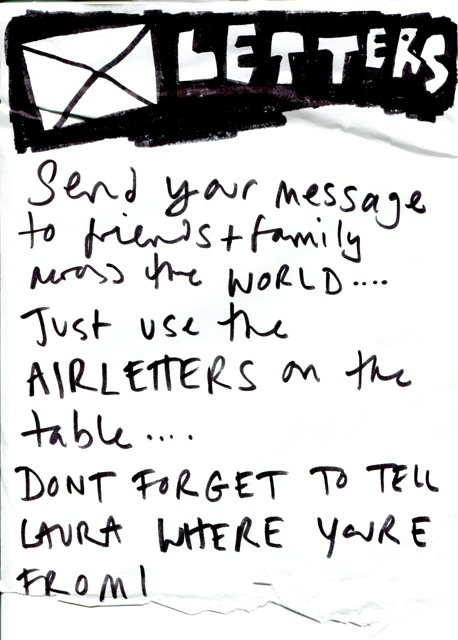 LETTERS
Send your message
to friends + family
across the WORLD....
Just use the
AIRLETTERS on the
table....
DONT FORGET TO TELL
LAURA WHERE YOU'RE
FROM!